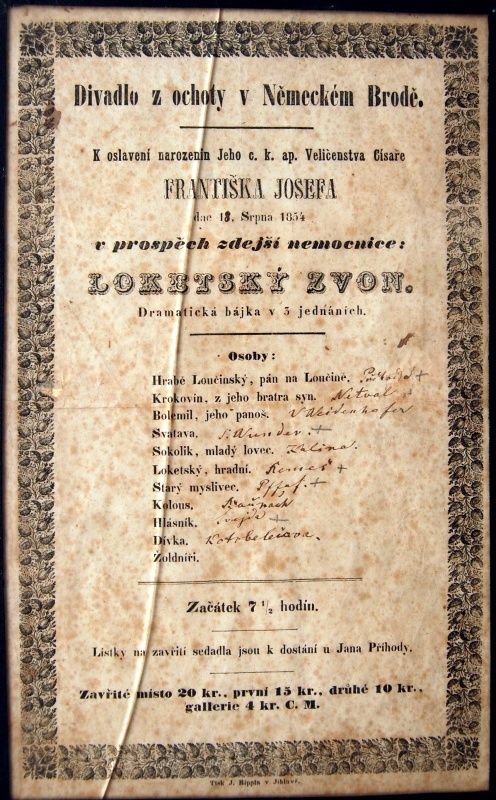 Divadlo z ochoty v Německém Brodě.
K oslavení narozenin Jeho c. k. ap. Veličenstva Císaře
FRANTIŠKA JOSEFA
dne 18. Srpna 1854
v prospěch zdejší nemocnice:
LOKETSKÝ ZVON.
Dramatická bájka v 5 jednáních.
Osoby:
Hrabě Loučinský, pán na Loučině. +
Krokovín, z jeho bratra syn. Nitval
Bolemil, jeho panoš. Weidenhofer
Svatava. Wunder. +
Sokolík, mladý lovec. Kalina.
Loketský, hradní. Remeš +
Starý myslivec. Pffaf. +
Kolous.
Hlásník. +
Dívka.
Žoldníři.
Začátek 7 1/2 hodin.
Lístky na zavřití sedadla jsou k dostání u Jana Příhody.
Zavřité místo 20 kr., první 15 kr., druhé 10 kr.,
gallerie 4 kr. C. M.
Tisk J. Rippla v Jihlavě.